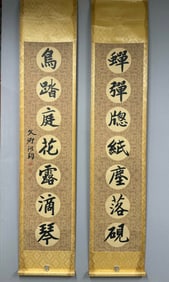 蟬彈牕紙塵落硯
鳥踏庭花露滴琴